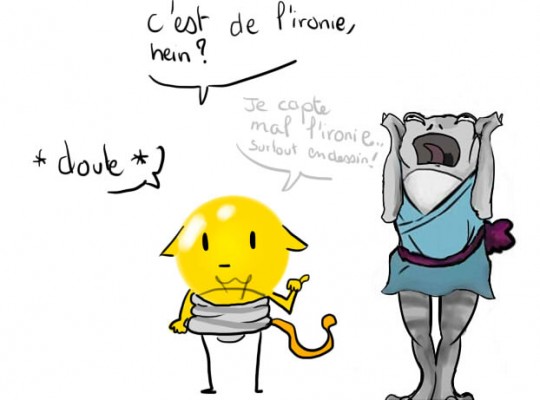 c'est de l'ironie,
hein?
Je capte
mal l'ironie..
surtout en dessin!
* doute *